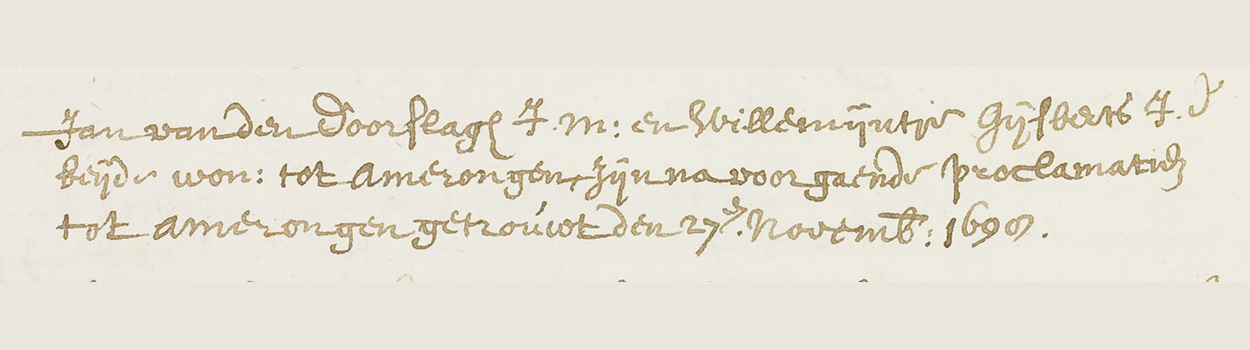 Jan van den Doorslagh J. m: en Willemijntje Gijsberts J. d
beijde won: tot Amerongen, zijn na voorgaende proclamatien
tot Amerongen getrouwt den 27e. Novemb: 1698.